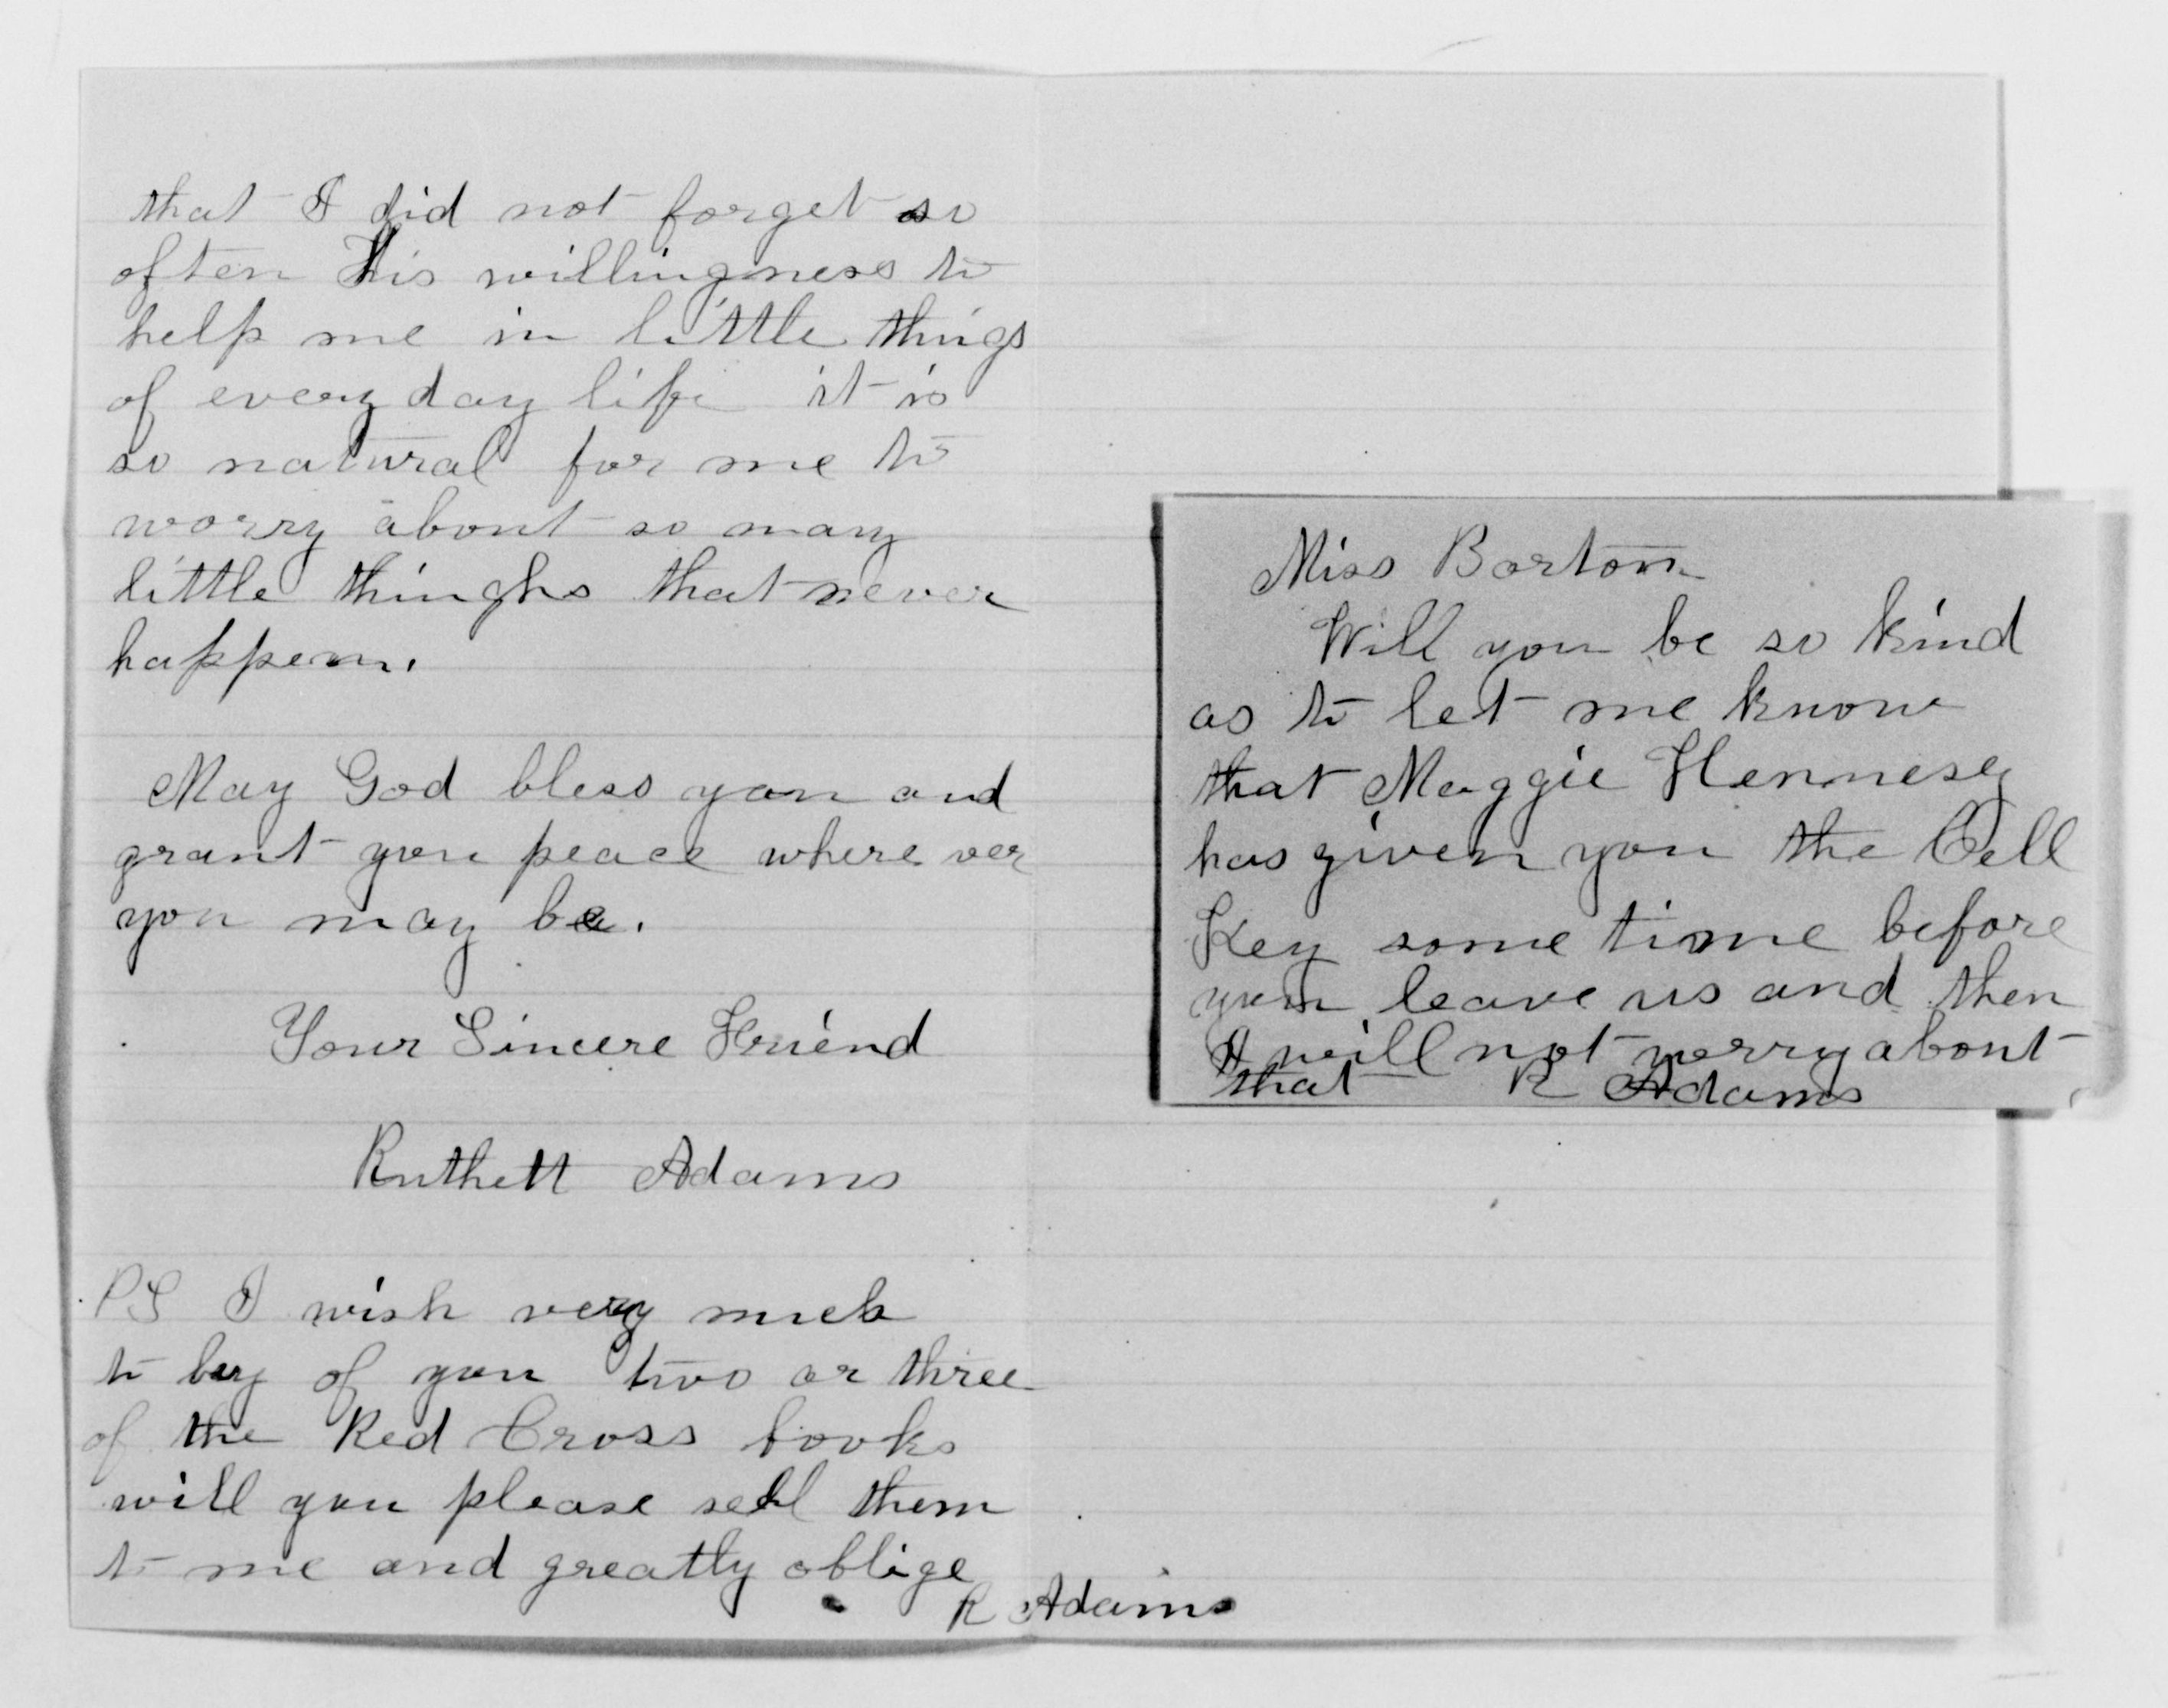 that I did not forget so
often His willingness to
help me in little things
of every day life it is
so natural for me to
worry about so many
little thinghs that never
happen.
May God bless you and
grant you peace where ver
you may be.
Your Sincere Friend
Ruthett Adams
PS I wish very much
to buy of you two or three
of the Red Cross books
will you please sell them
to me and greatly oblige
R Adams
Miss Barton
Will you be so kind
as to let me know
that Maggie Hennesey
has given you the Cell
Key some time before
you leave us and then
I will not worry about
that R Adams